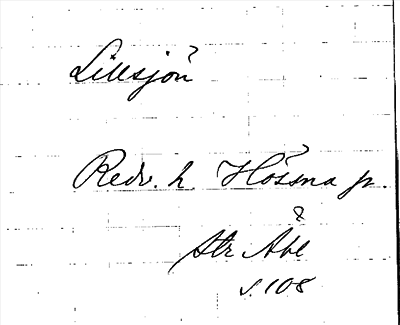 Lillsjön
Redv. h Hössna sn.
Str Åke
s. 108